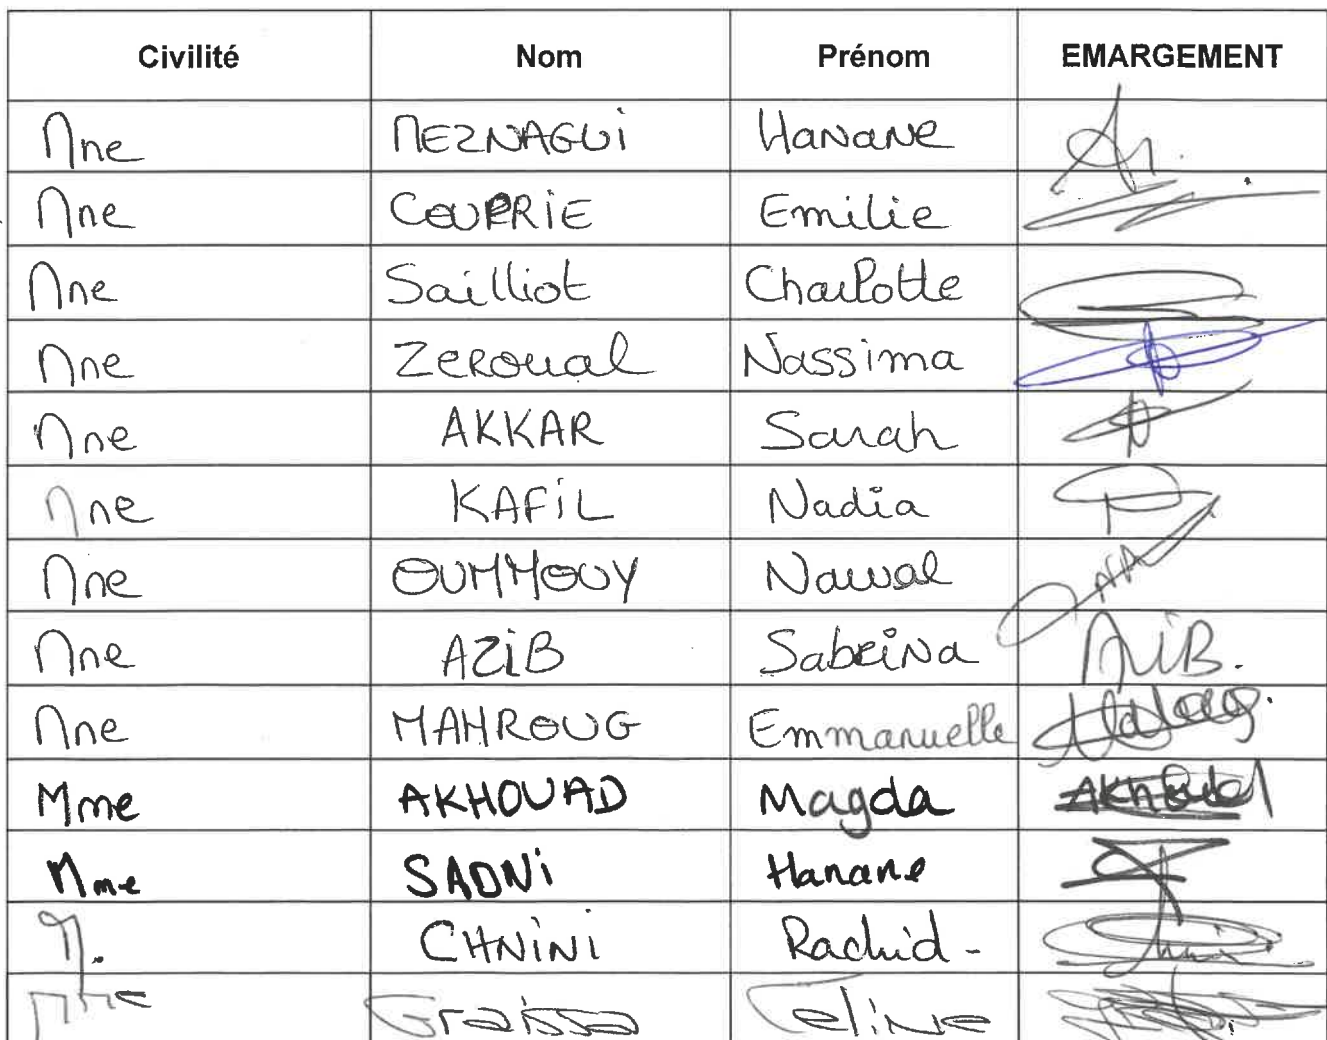 Civilité Nom Prénom EMARGEMENT
Mme MEZNAGUi HaNaNe
Mme COUPRiE Emilie
Mme Sailliot Charlotte
Mme ZeRoual Nassima
Mme AKKAR Sarah
Mme KAFiL Nadia
Mme OUMMOUY Nawal
Mme AZiB SabRiNa AZiB.
Mme MAHROUG Emmanuelle
Mme AKHOUAD Magda AKhouad
Mme SADNi Hanane
M. CHNiNi Rachid -
Mme Graissa Celine